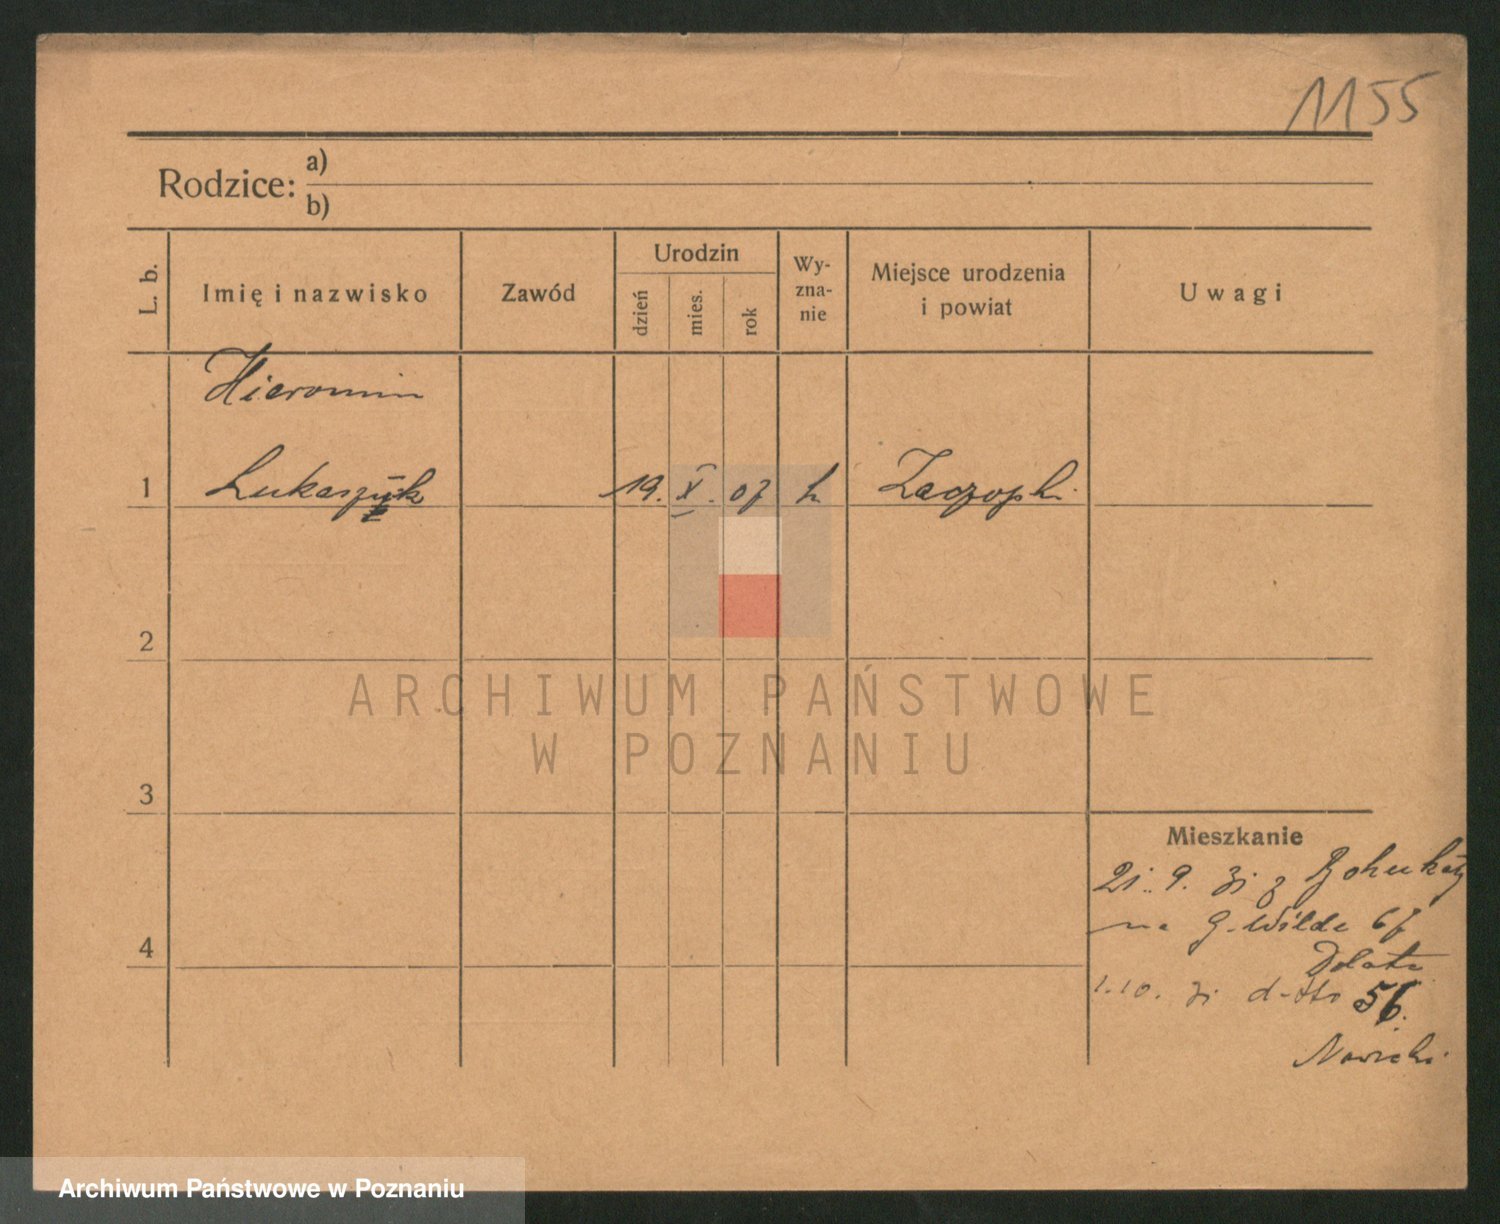 1155
Rodzice: a)
b)
L. b.
Imię i nazwisko
Zawód
Urodzin
dzień
mies.
rok
Wy-
zna-
nie
Miejsce urodzenia
i powiat
Uwagi
Hieronim
1 Łukaszyk 19. X. 07 k
2
3
4
Mieszkanie
21. 9. 31 z
na G. Wilda 67
Dolata
1.10. 31 d-tto 56.
Nowicki
ARCHIWUM PAŃSTWOWE
W POZNANIU
Archiwum Państwowe w Poznaniu